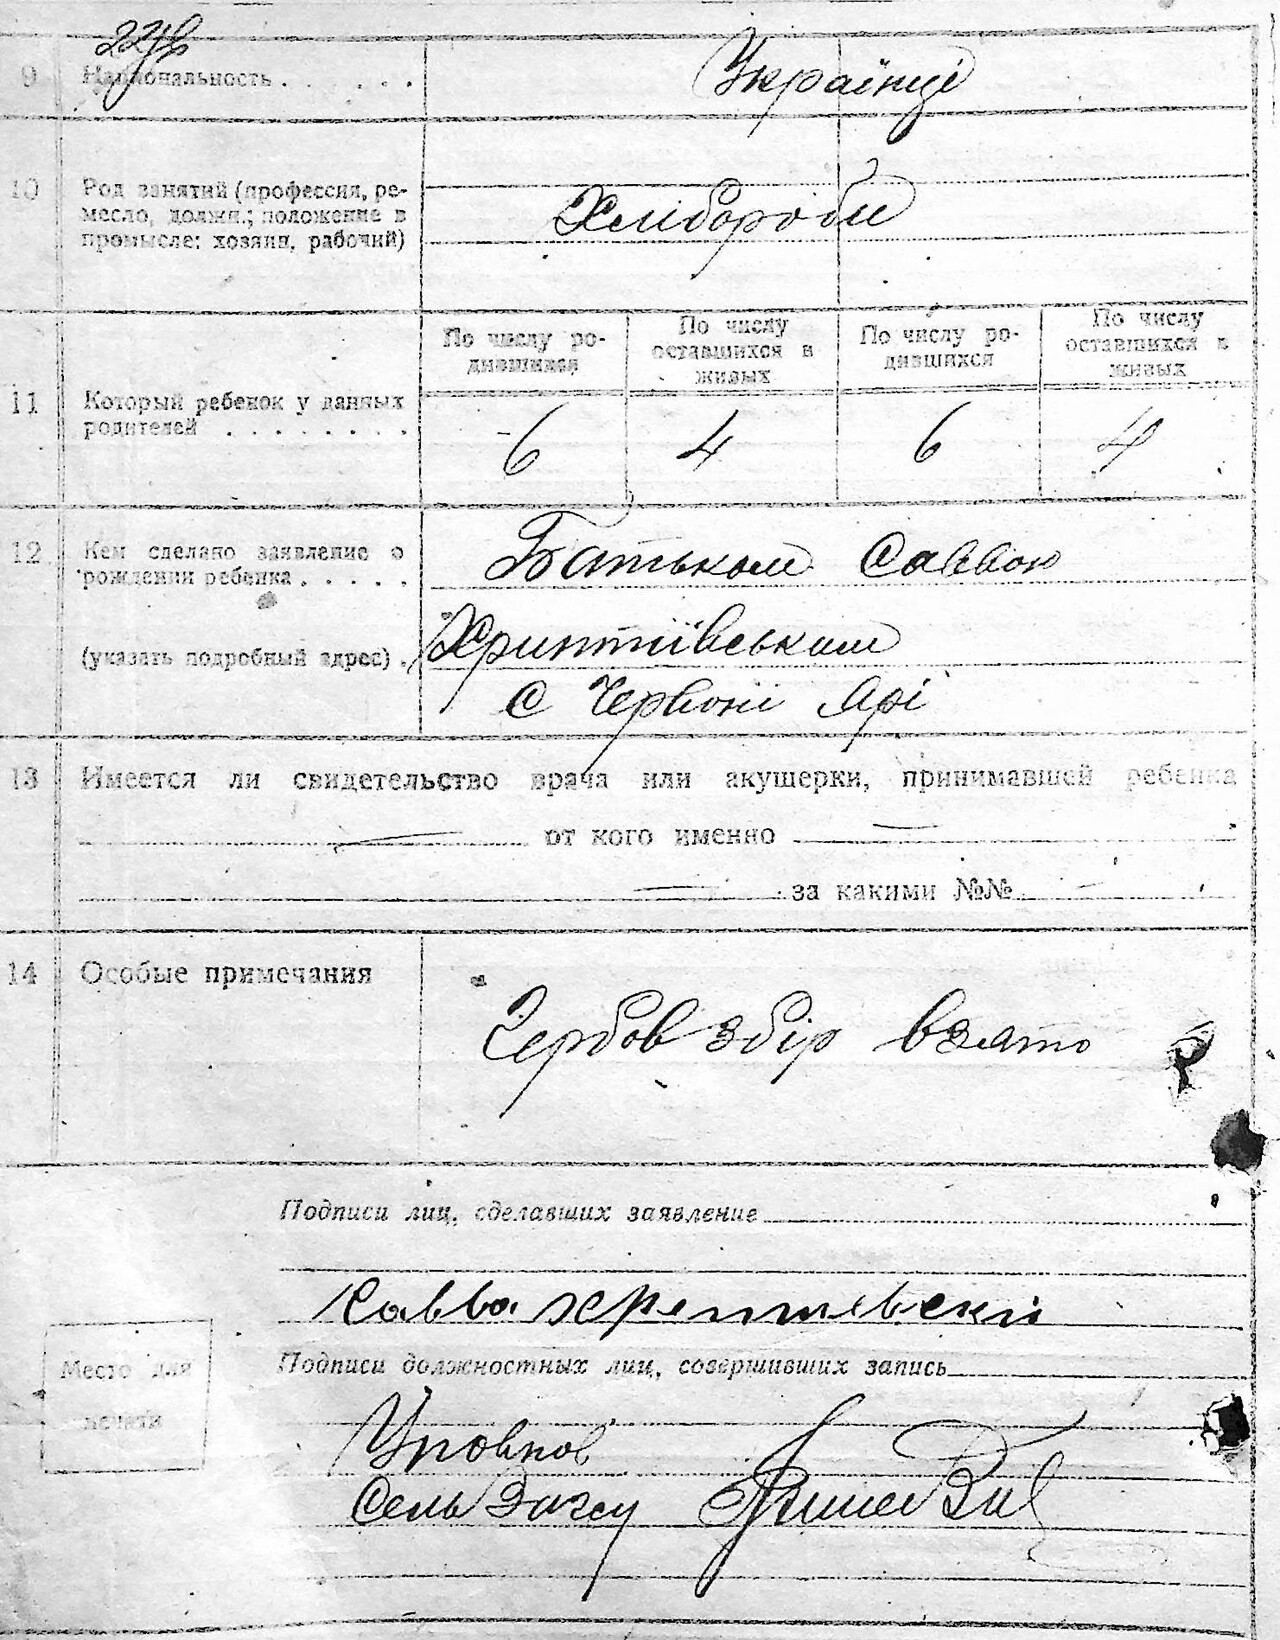 9 Национальность . . . . . Українці
10 Род занятий (профессия, ре-
месло, должн.; положение в
промысле: хозяин, рабочий)
Хлібороби
По числу ро-
дившихся
По числу
оставшихся в
живых
По числу ро-
дившихся
По числу
оставшихся в
живых
11 Который ребенок у данных
родителей . . . . . . . .
6 4 6 4
12 Кем сделано заявление о
рождении ребенка . . . . .
Батьком Саввою
(указать подробный адрес) .
Хриптіївським
с Червоні Ярі
13 Имеется ли свидетельство врача или акушерки, принимавшей ребенка
от кого именно
за какими №№
14 Особые примечания
Гербов збір взято
Подписи лиц, сделавших заявление
Савва Хрептиевский
Подписи должностных лиц, совершивших запись
Место для
печати
Уповнов
Сель Загсу